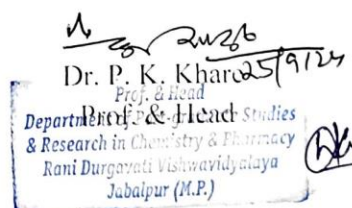 Dr. P. K. Khare
25/9/24
Prof. & Head
Prof. & Head
Department of Post-graduate Studies
& Research in Chemistry & Pharmacy
Rani Durgavati Vishwavidyalaya
Jabalpur (M.P.)